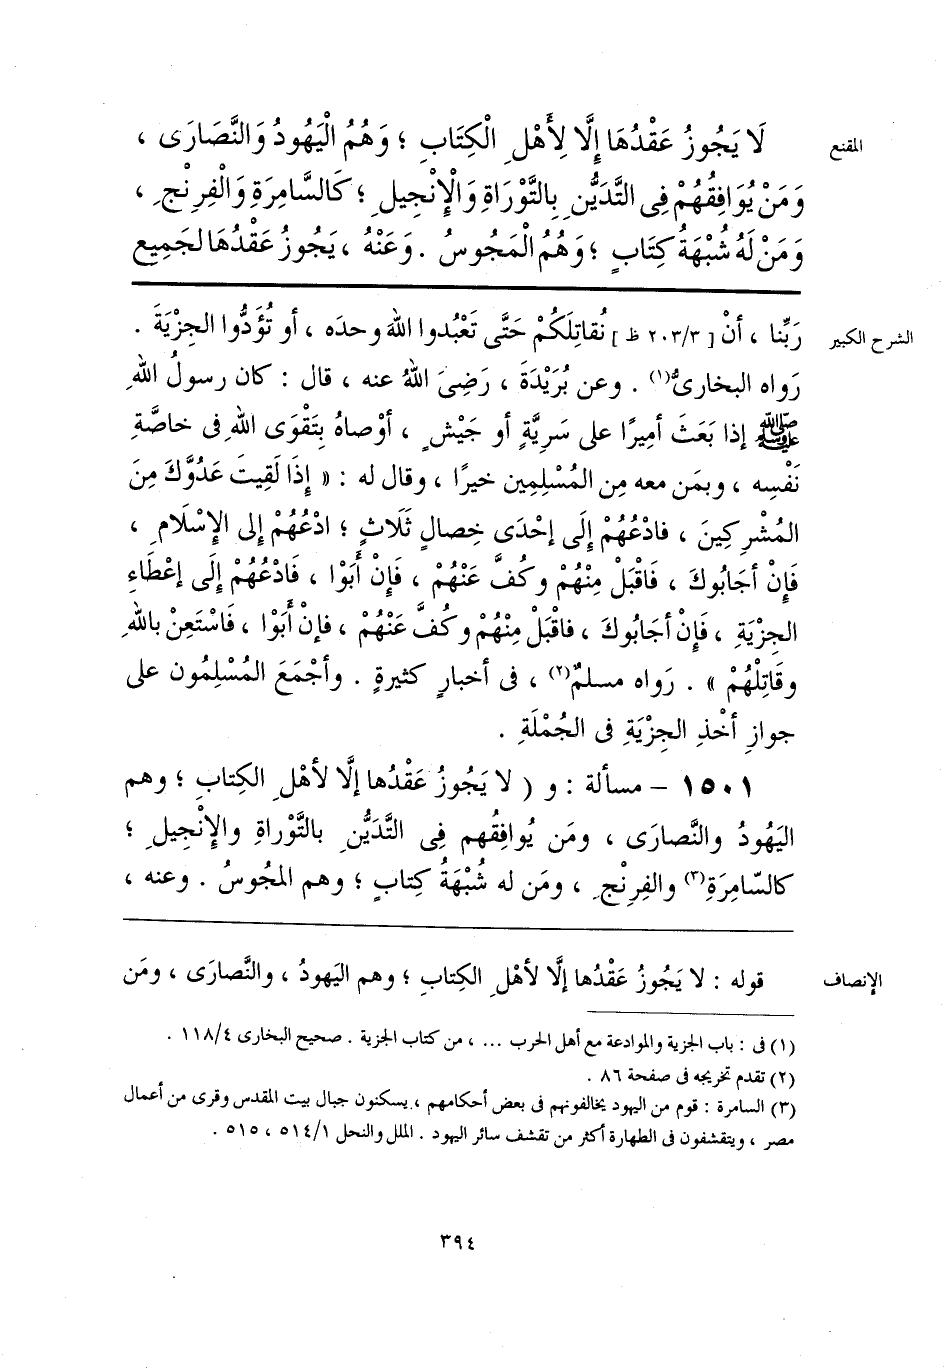 المقنع
لَا يَجُوزُ عَقْدُهَا إِلَّا لِأَهْلِ الْكِتَابِ ؛ وَهُمُ الْيَهُودُ وَالنَّصَارَى ،
وَمَنْ يُوَافِقُهُمْ فِى التَّدَيُّنِ بِالتَّوْرَاةِ وَالْإِنْجِيلِ ؛ كَالسَّامِرَةِ وَالْفِرِنْجِ ،
وَمَنْ لَهُ شُبْهَةُ كِتَابٍ ؛ وَهُمُ الْمَجُوسُ . وَعَنْهُ ، يَجُوزُ عَقْدُهَا لجَمِيعِ
الشرح الكبير
رَبِّنا ، أنْ [ ٢٠٣/٣ ظ ] نُقاتِلَكُمْ حَتَّى تَعْبُدوا اللهَ وحدَه ، أو تُؤَدُّوا الجِزْيَةَ .
رَواه البخارىُّ(١) . وعن بُرَيْدَةَ ، رَضِىَ اللهُ عنه ، قال : كان رسولُ اللهِ
ﷺ إذا بَعَثَ أمِيرًا على سَرِيَّةٍ أو جَيْشٍ ، أوْصاهُ بِتَقْوَى اللهِ فى خاصَّةِ
نَفْسِه ، وبمَن معه مِن المُسْلِمِين خيرًا ، وقال له : « إِذَا لَقِيتَ عَدُوَّكَ مِنَ
المُشْرِكِينَ ، فادْعُهُمْ إِلَى إحْدَى خِصالٍ ثَلَاثٍ ؛ ادْعُهُمْ إلى الإِسْلَامِ ،
فَإِنْ أجَابُوكَ ، فَاقْبَلْ مِنْهُمْ وكُفَّ عَنْهُمْ ، فَإِنْ أَبَوْا ، فَادْعُهُمْ إلَى إعْطَاءِ
الجِزْيَةِ ، فَإِنْ أجَابُوكَ ، فاقْبَلْ مِنْهُمْ وكُفَّ عَنْهُمْ ، فإنْ أَبَوْا ، فَاسْتَعِنْ باللهِ
وقَاتِلْهُمْ » . رَواه مسلمٌ(٢) ، فى أخبارٍ كثيرةٍ . وأجْمَعَ المُسْلِمُون على
جوازِ أخْذِ الجِزْيَةِ فى الجُمْلَةِ .
١٥٠١ – مسألة : و ( لا يَجُوزُ عَقْدُها إلَّا لأهْلِ الكِتابِ ؛ وهم
اليَهُودُ والنَّصارَى ، ومَن يُوافِقُهم فِى التَّدَيُّنِ بالتَّوْراةِ والإِنْجِيلِ ؛
كالسّامِرَةِ(٣) والفِرِنْجِ ، ومَن له شُبْهَةُ كِتابٍ ؛ وهم المجُوسُ . وعنه ،
الإنصاف
قوله : لا يَجُوزُ عَقْدُها إلَّا لأهْلِ الكِتابِ ؛ وهم اليَهودُ ، والنَّصارَى ، ومَن
(١) فى : باب الجزية والموادعة مع أهل الحرب ... ، من كتاب الجزية . صحيح البخارى ١١٨/٤ .
(٢) تقدم تخريجه فى صفحة ٨٦ .
(٣) السامرة : قوم من اليهود يخالفونهم فى بعض أحكامهم ، يسكنون جبال بيت المقدس وقرى من أعمال
مصر ، ويتقشفون فى الطهارة أكثر من تقشف سائر اليهود . الملل والنحل ٥١٤/١ ، ٥١٥ .
٣٩٤